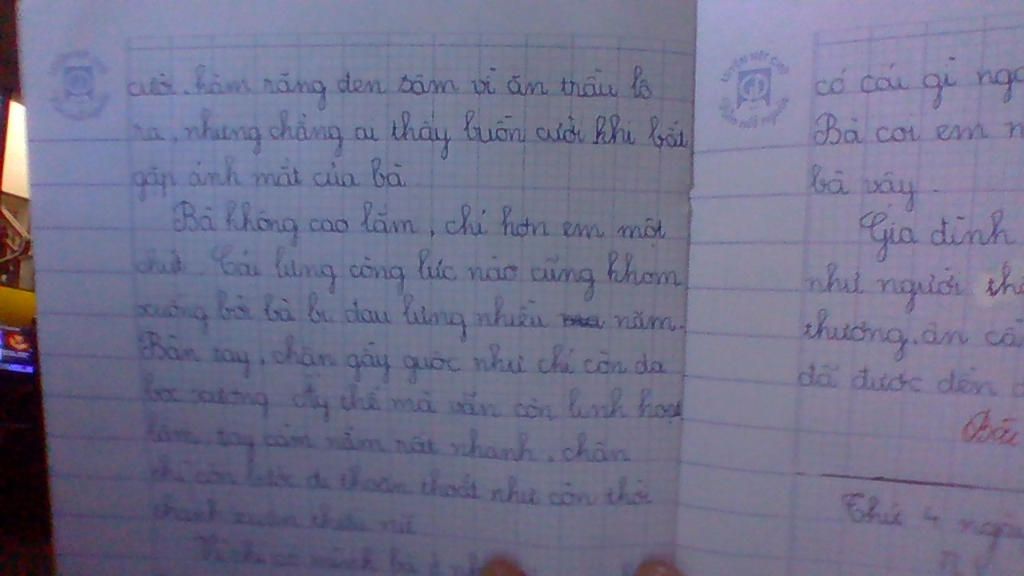 cười, hàm răng đen sậm vì ăn trầu lộ
ra, nhưng chẳng ai thấy buồn cười khi bắt
gặp ánh mắt của bà
Bà không cao lắm, chỉ hơn em một
chút. Cái lưng còng lúc nào cũng khom
xuống bởi bà bị đau lưng nhiều năm.
Bàn tay, chân gầy guộc như chỉ còn da
bọc xương ấy thế mà vẫn còn linh hoạt
lắm, tay cầm nắm rất nhanh, chân
thì còn bước đi thoăn thoắt như còn thời
thanh xuân thiếu nữ
có cái gì
Bà coi em
bà vậy.
Gia đình
như người
thương, ân
đã được đến
Thứ 4